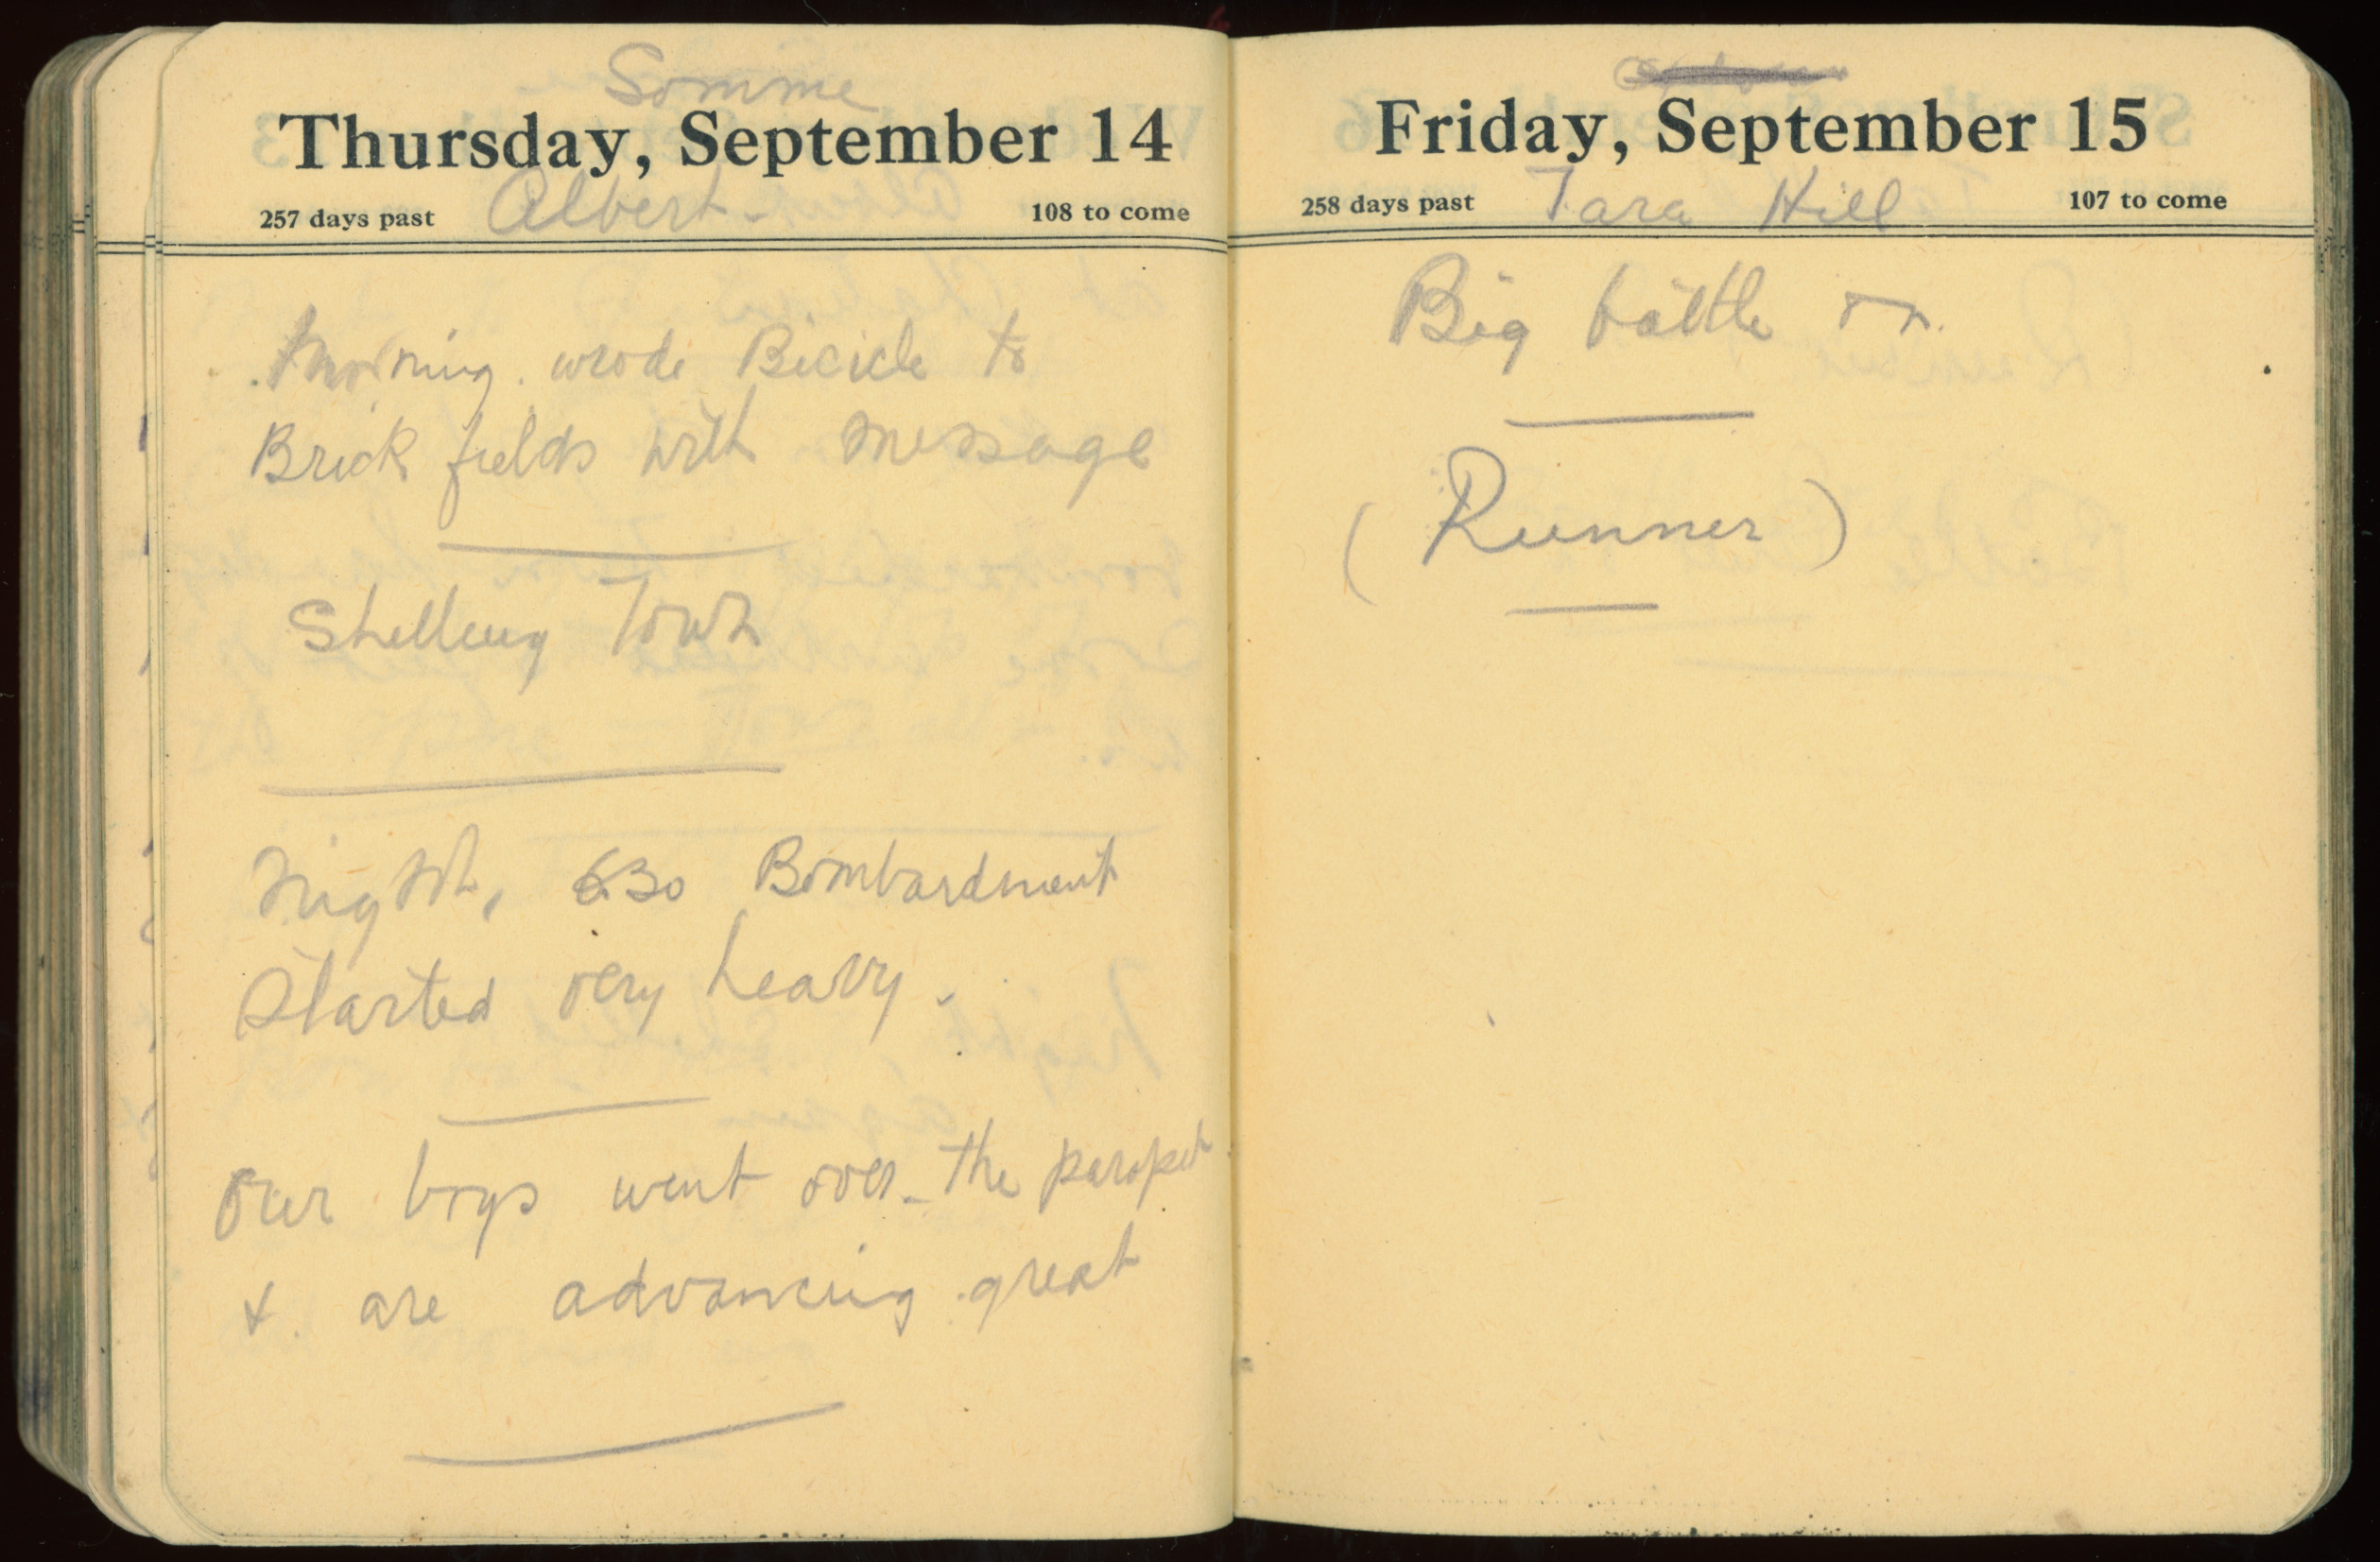 Somme
Thursday, September 14
257 days past Albert 108 to come
Morning. wrode Bicicle to
Brick fields with message
Shelling Town
Night, 630 Bombardment
Started very heavy.
Our boys went over the parapet
& are advancing great
Friday, September 15
258 days past Tara Hill 107 to come
Big battle on.
(Runner)